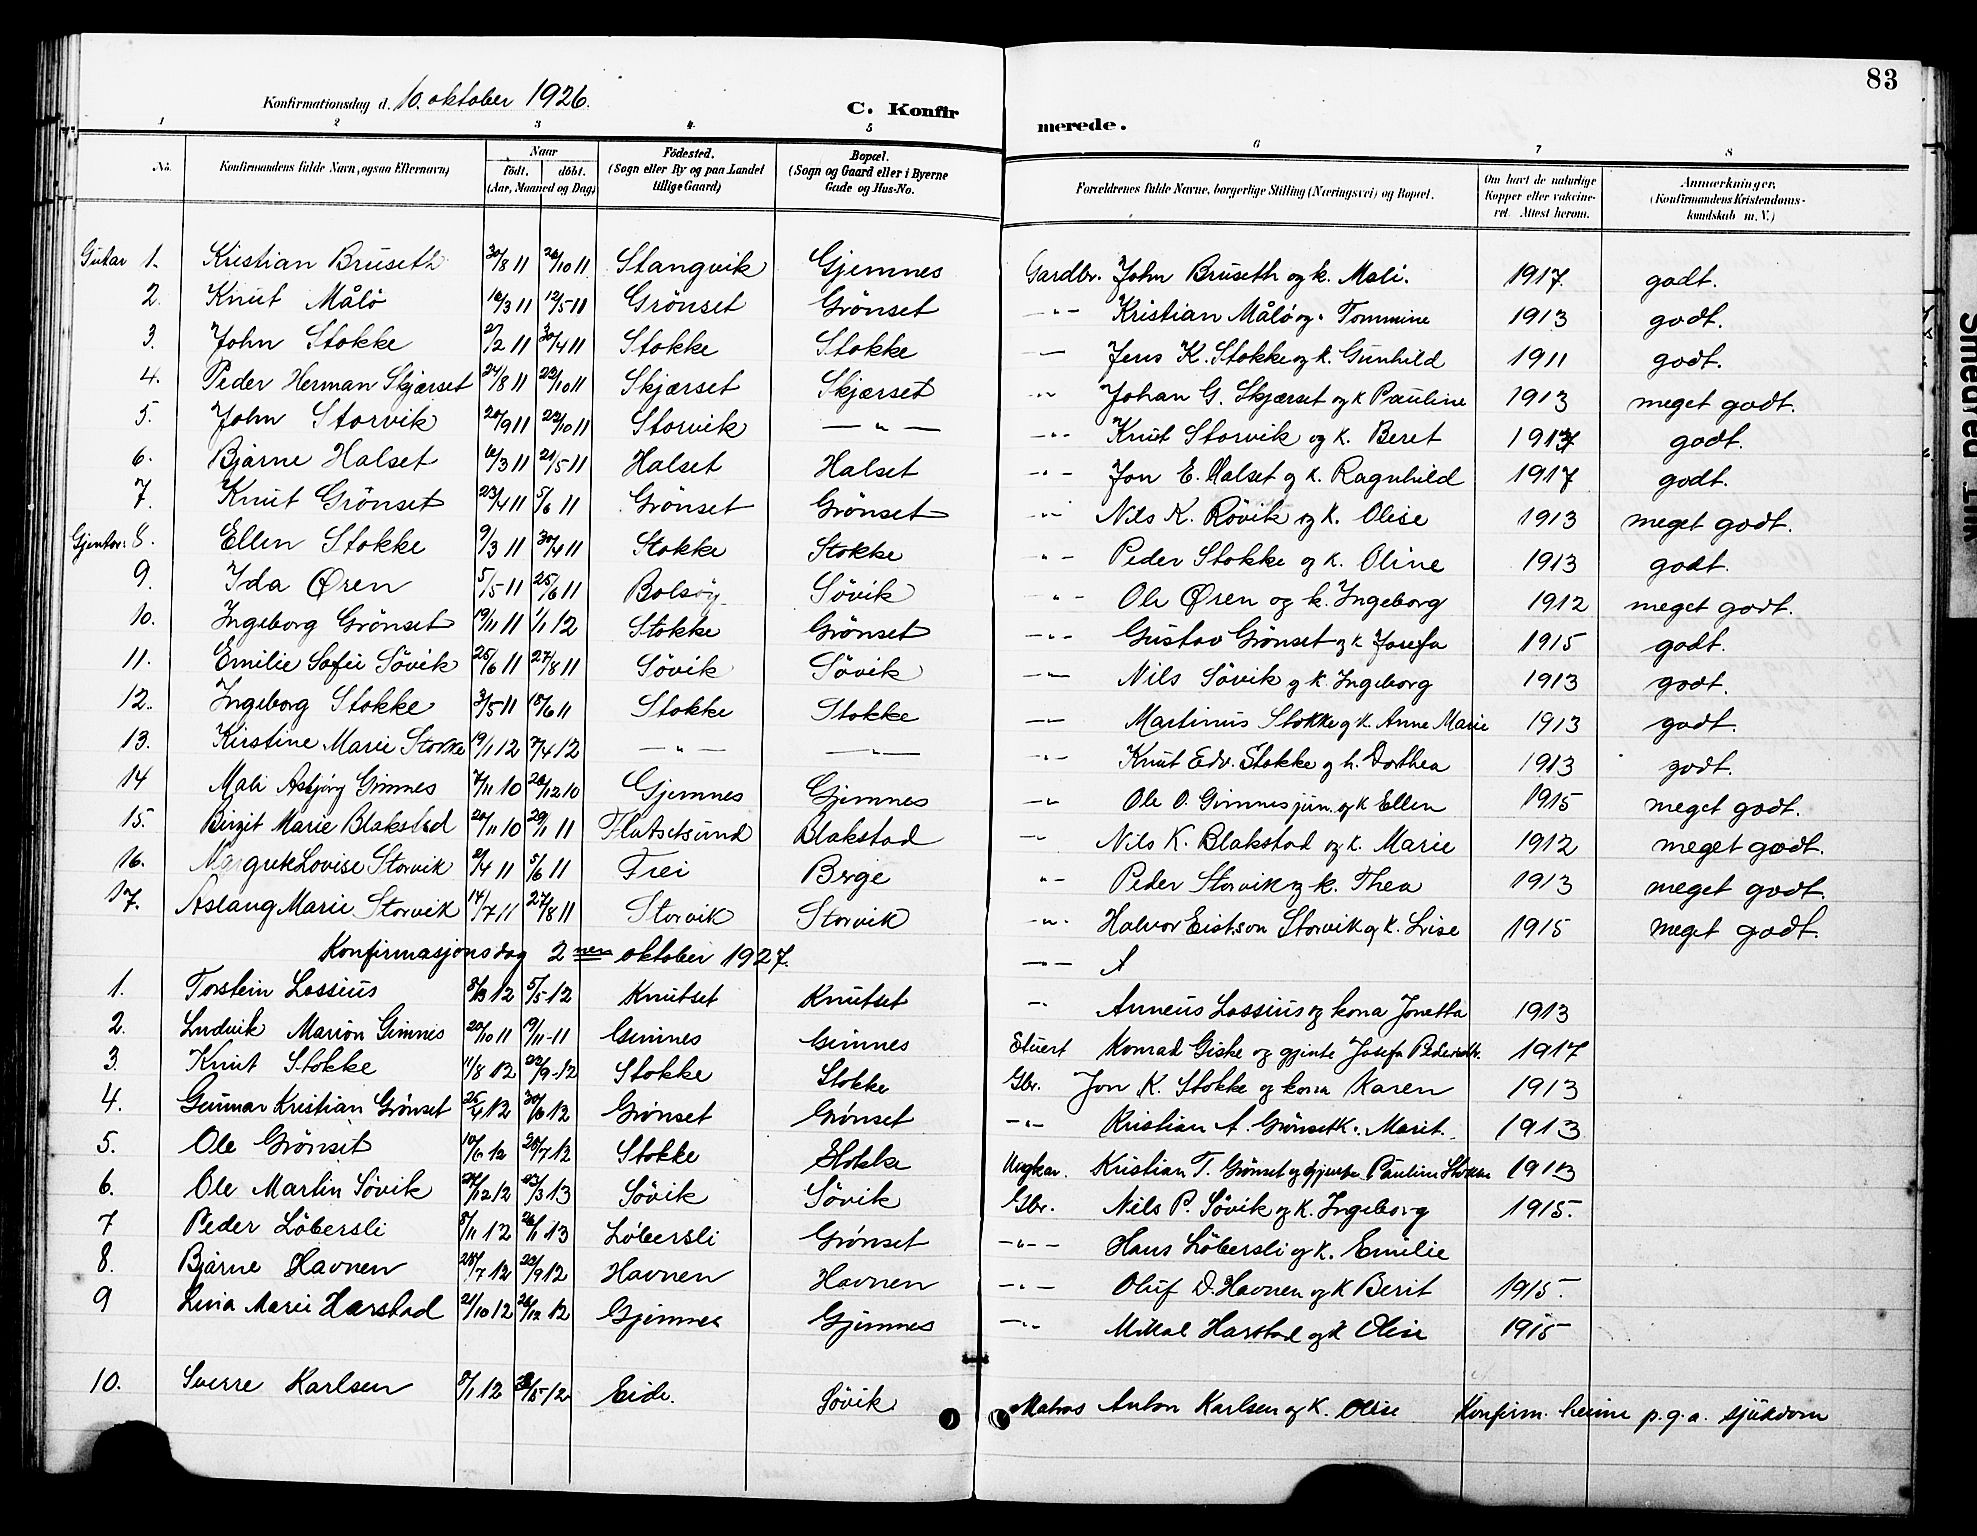 83
Konfirmationsdag d. 10. oktober 1926. C. Konfirmerede.
1 2 3 4 5 6 7 8
No. Konfirmandens fulde Navn, ogsaa Efternavn) Naar født. døbt. (Aar, Maaned og Dag) Fødested. (Sogn eller By og paa Landet tillige Gaard) Bopæl. (Sogn og Gaard eller i Byerne Gade og Hus-No. Forældrenes fulde Navne, borgerlige Stilling (Næringsvei) og Bopæl. Om havt de naturlige Kopper eller vakcineret. Attest herom. Anmærkninger. (Konfirmandens Kristendomskundskab m. V.)
Gutar 1. Kristian Bruseth 30/8 11 26/10 11 Stangvik Gjemnes Gardbr. John Bruseth og k. Mali. 1917. godt.
2. Knut Målö 16/3 11 12/5 11 Grönset Grönset -"- Kristian Målö og Tommine 1913 godt.
3. John Stokke 2/2 11 30/4 11 Stokke Stokke — Jens K. Stokke og k. Gunhild 1911 godt.
4. Peder Herman Skjærset 24/8 11 22/10 11 Skjærset Skjærset -"- Johan G. Skjærset og k Pauline 1913 meget godt.
5. John Storvik 20/9 11 22/10 11 Storvik — " — -"- Knut Storvik og k. Beret 1917 godt.
6. Bjarne Halset 16/3 11 21/5 11 Halset Halset -"- Jon E. Halset og k. Ragnhild 1917 godt.
7. Knut Grönset 23/4 11 5/6 11 Grönset Grönset -"- Nils K. Rövik og k. Olise 1913 meget godt.
Gjentor: 8. Ellen Stokke 9/3 11 30/4 11 Stokke Stokke -"- Peder Stokke og k. Oline 1913 godt.
9. Ida Øren 5/5 11 25/6 11 Bolsöy Sövik -"- Ole Øren og k. Ingeborg 1912 meget godt.
10. Ingeborg Grönset 19/11 11 1/1 12 Stokke Grönset -"- Gustav Grönset og k Josefa 1915 godt.
11. Emilie Sofie Sövik 25/6 11 27/8 11 Sövik Sövik -"- Nils Sövik og k. Ingeborg 1913 godt.
12. Ingeborg Stokke 3/5 11 18/6 11 Stokke Stokke -"- Martinus Stokke og k. Anne Marie 1913 godt.
13. Kirstine Marie Stokke 19/1 12 7/4 12 — " — — " — -"- Knut Edv. Stokke og h. Dorthea 1913 godt.
14 Mali Asbjörg Gimnes 7/11 10 26/12 10 Gjemnes Gjemnes -"- Ole O. Gimnes jun. og k Ellen 1915 meget godt.
15. Birgit Marie Blakstad 20/11 10 29/1 11 Flatsetsund Blakstad -"- Nils K. Blakstad og k. Marie 1912 meget godt.
16. Margrete Lovise Storvik 2/4 11 5/6 11 Frei Berge -"- Peder Storvik og k. Thea 1913 meget godt.
17. Aslaug Marie Storvik 14/7 11 27/8 11 Storvik Storvik -"- Halvor Eistson Storvik og k. Lise 1915 meget godt.
Konfirmasjonsdag 2nen oktober 1927. -"-
1. Torstein Lossius 12 5/5-12 Knutset Knutset -"- Anneus Lossius og kona Jonetta 1913
2. Ludvik Marion Gimnes 20/10 11 19/11-11 Gimnes Gimnes Stuert Konrad Giske og gjente Josefa 1917
3. Knut Stokke 11/8 12 22/9-12 Stokke Stokke Gbr. Jon K. Stokke og kona Karen 1913
4. Gunnar Kristian Grönset 25/4 12 30/6 12 Grönset Grönset -"- Kristian A. Grönset k. Marit. 1913
5. Ole Grönset 10/6 12 28/7 12 Stokke Stokke Ungkar. Kristian T. Grönset og gjente Pauline Stokke 1913
6. Ole Martin Sövik 12 12 23/3 13 Sövik Sövik Gbr. Nils P. Sövik og k. Ingeborg 1915.
7 Peder Löbersli 8/11 12 26/1 13 Löbersli Grönset -"- Hans Löbersli og k. Emilie
8. Bjarne Havnen 28/7 12 22/9 12 Havnen Havnen -"- Oluf D. Havnen og k Berit 1915.
9 Livia Marie Harstad 21/10 12 26/12 12 Gjemnes Gjemnes -"- Mikal Harstad og k Olise 1915
10. Sverre Karlsen 8/1 12 /5-12 Eide. Sövik Matros Anton Karlsen og k. Olise Konfirm. heime p.g.a. sjukdom